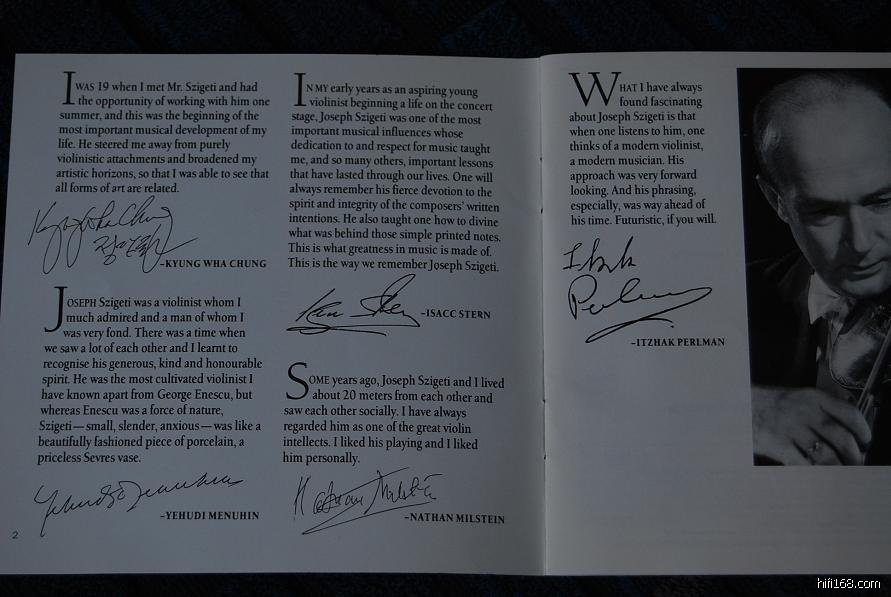 I WAS 19 when I met Mr. Szigeti and had
the opportunity of working with him one
summer, and this was the beginning of the
most important musical development of my
life. He steered me away from purely
violinistic attachments and broadened my
artistic horizons, so that I was able to see that
all forms of art are related.
Kyung Wha Chung
정경화
–KYUNG WHA CHUNG
JOSEPH Szigeti was a violinist whom I
much admired and a man of whom I
was very fond. There was a time when
we saw a lot of each other and I learnt to
recognise his generous, kind and honourable
spirit. He was the most cultivated violinist I
have known apart from George Enescu, but
whereas Enescu was a force of nature,
Szigeti—small, slender, anxious—was like a
beautifully fashioned piece of porcelain, a
priceless Sevres vase.
Yehudi Menuhin
–YEHUDI MENUHIN
2
IN MY early years as an aspiring young
violinist beginning a life on the concert
stage, Joseph Szigeti was one of the most
important musical influences whose
dedication to and respect for music taught
me, and so many others, important lessons
that have lasted through our lives. One will
always remember his fierce devotion to the
spirit and integrity of the composers' written
intentions. He also taught one how to divine
what was behind those simple printed notes.
This is what greatness in music is made of.
This is the way we remember Joseph Szigeti.
–ISACC STERN
SOME years ago, Joseph Szigeti and I lived
about 20 meters from each other and
saw each other socially. I have always
regarded him as one of the great violin
intellects. I liked his playing and I liked
him personally.
Nathan Milstein
–NATHAN MILSTEIN
WHAT I have always
found fascinating
about Joseph Szigeti is that
when one listens to him, one
thinks of a modern violinist,
a modern musician. His
approach was very forward
looking. And his phrasing,
especially, was way ahead of
his time. Futuristic, if you will.
Itzhak
Perlman
–ITZHAK PERLMAN
hifi168.com